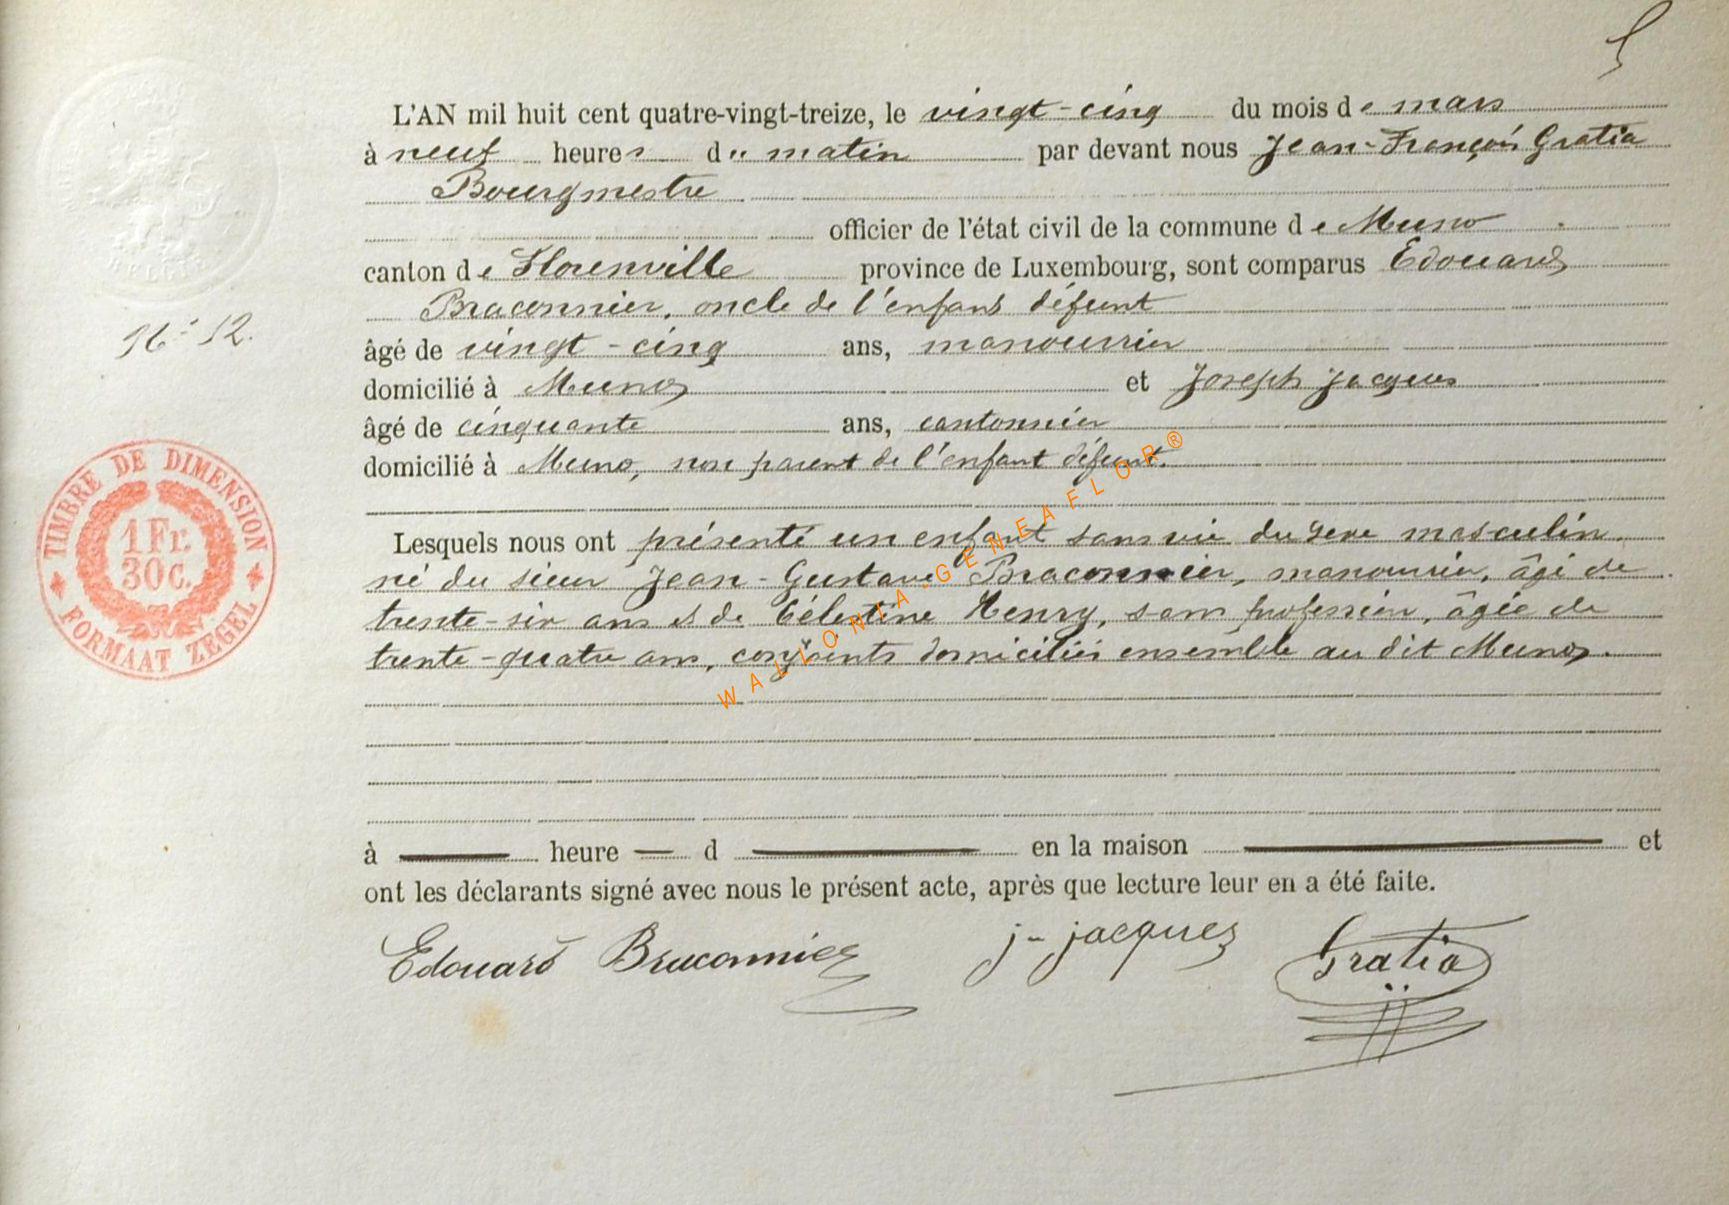 L'AN mil huit cent quatre-vingt-treize, le vingt-cinq du mois de mars
à neuf heures du matin par devant nous Jean-François Gratia
Bourgmestre
officier de l'état civil de la commune de Muno
canton de Florenville province de Luxembourg, sont comparus Edouard
Braconnier, oncle de l'enfant défunt
âgé de vingt-cinq ans, manouvrier
domicilié à Muno et Joseph Jacques
âgé de cinquante ans, cantonnier
domicilié à Muno, non parent de l'enfant défunt.
Lesquels nous ont présenté un enfant sans vie du sexe masculin.
né du sieur Jean-Gustave Braconnier, manouvrier, âgé de
trente-six ans et de Célestine Henry, sans profession, âgée de
trente-quatre ans, conjoints domiciliés ensemble au dit Muno.
à heure d en la maison et
ont les déclarants signé avec nous le présent acte, après que lecture leur en a été faite.
Edouard Braconnier J. Jacques Gratia
BELGIË
N° 12.
TIMBRE DE DIMENSION
1 Fr.
30 C.
FORMAAT ZEGEL
WALLONIA-GENEAFLOR®